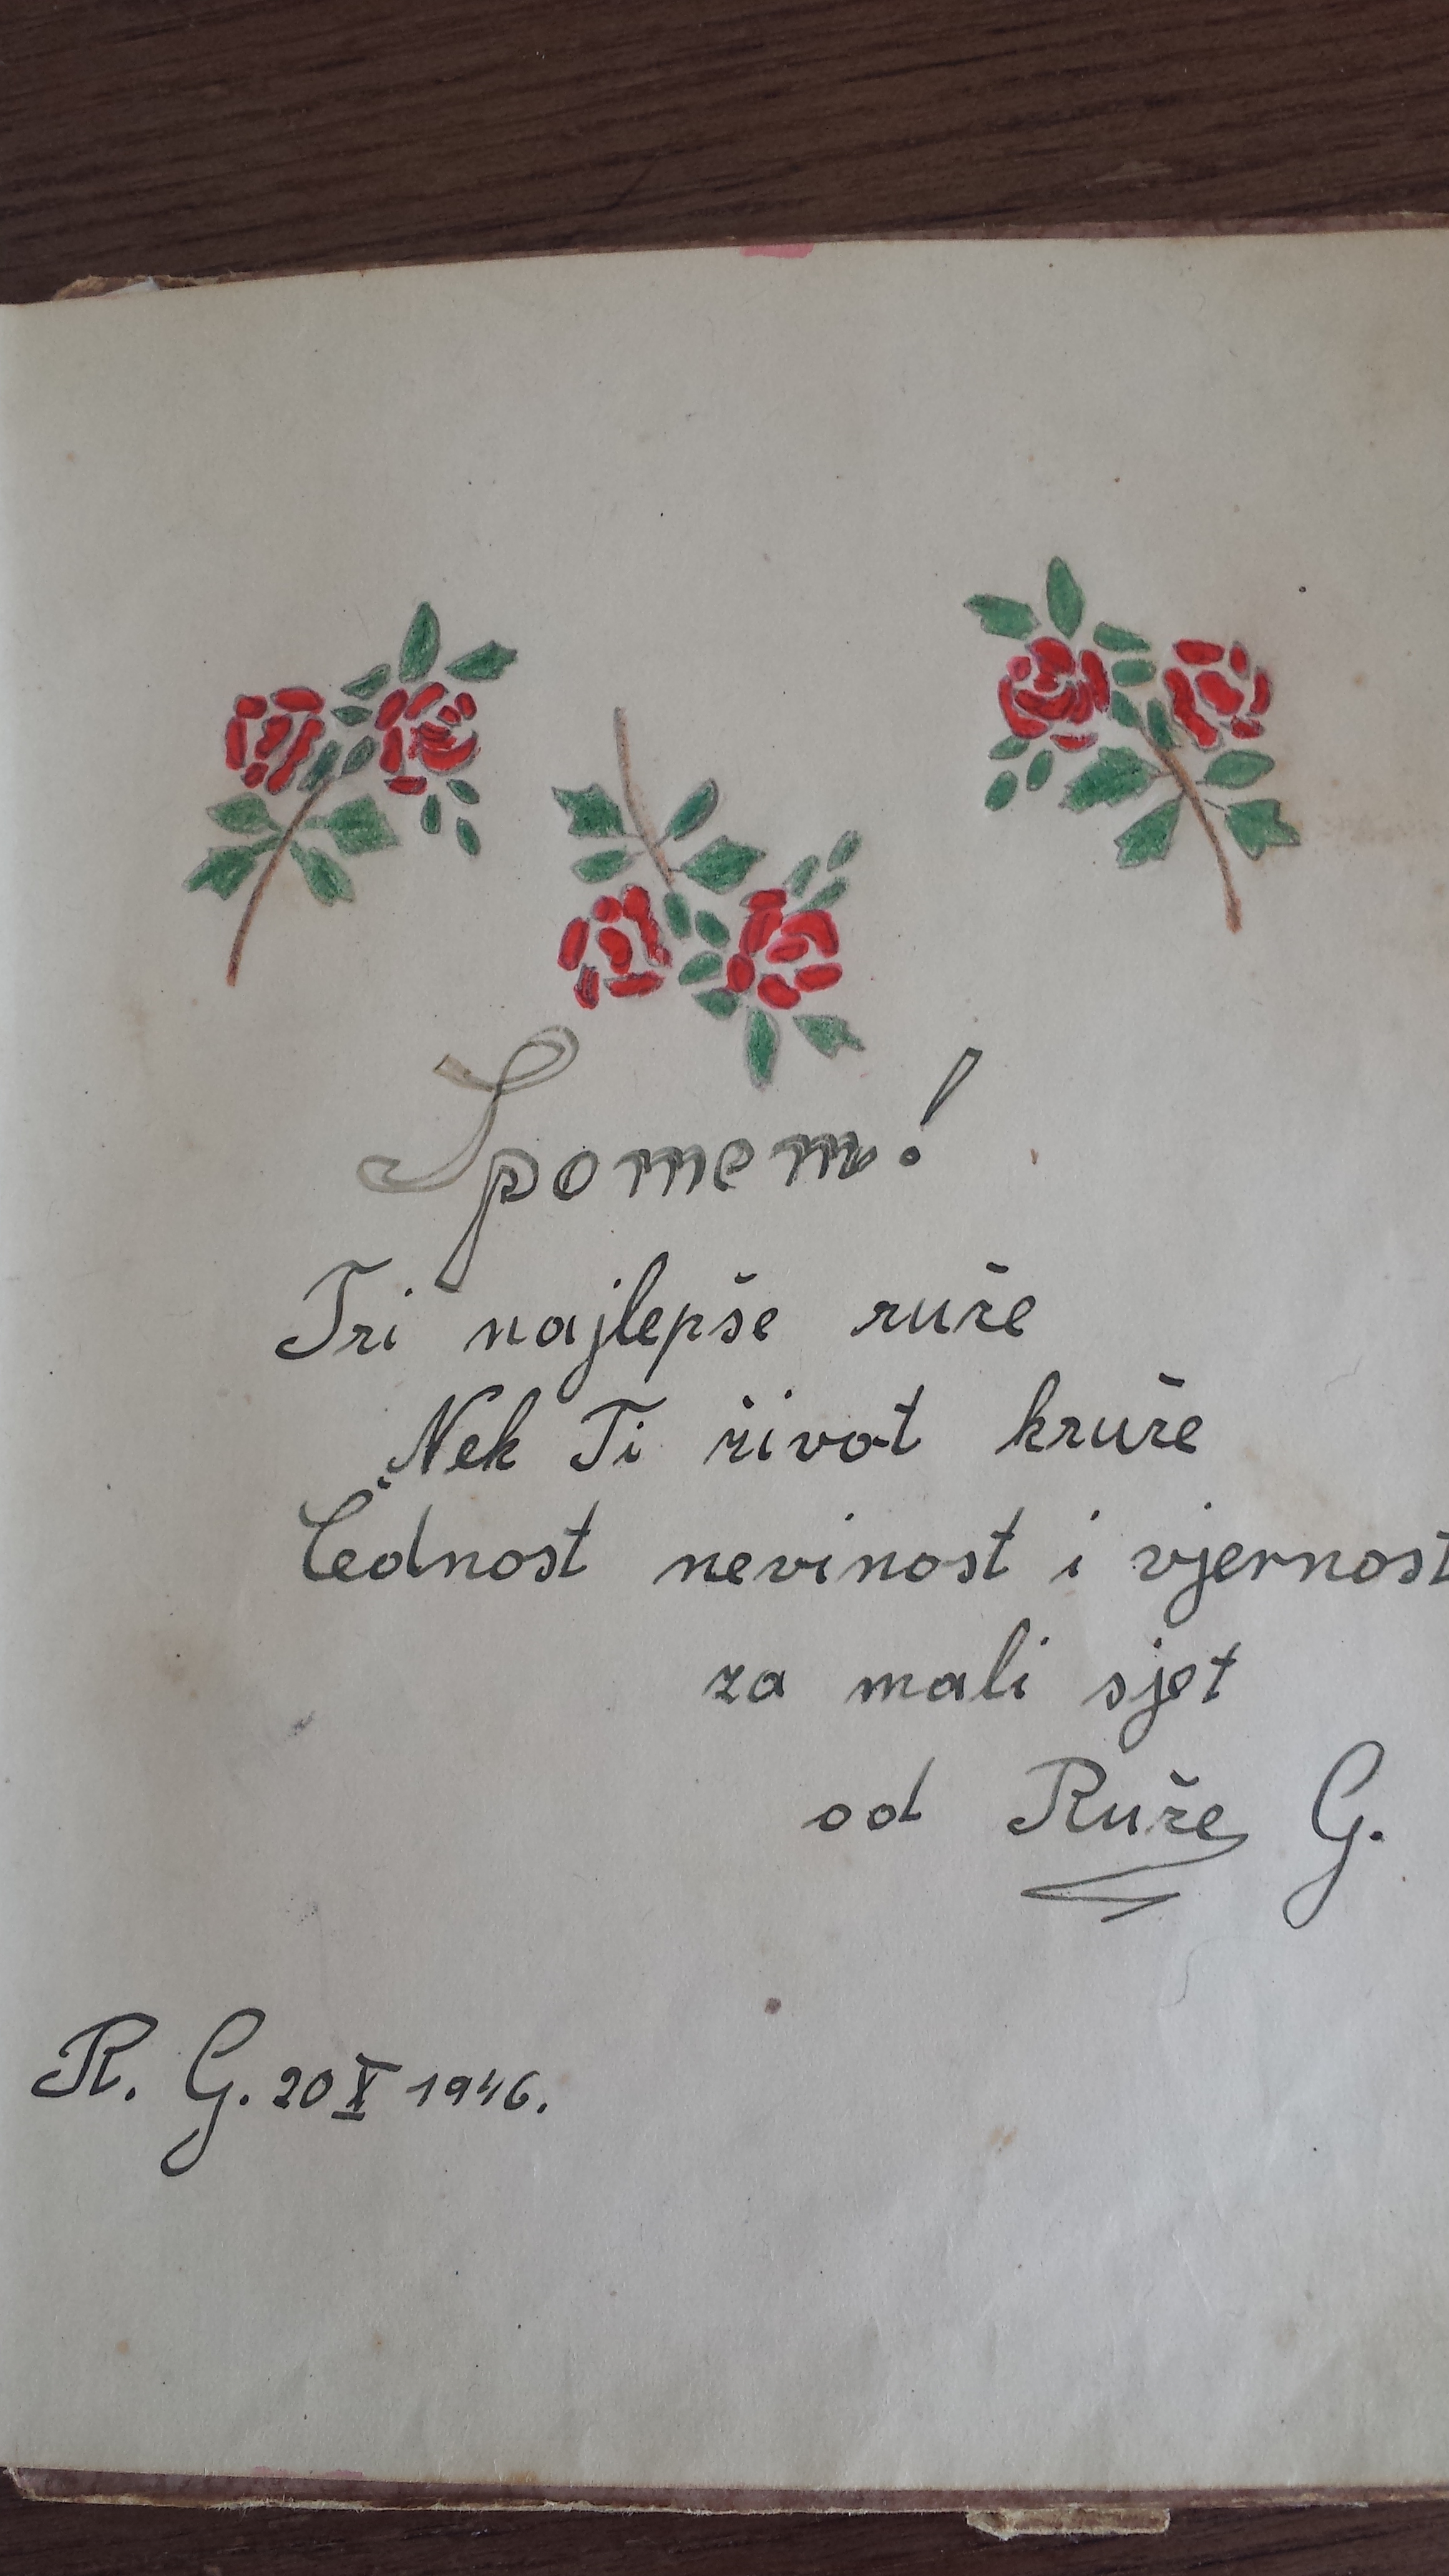 Spomen!
Tri najlepše ruže
Nek Ti život kruže
Čednost nevinost i vjernost
za mali sjet
od Ruže G.
R. G. 20 X 1946.